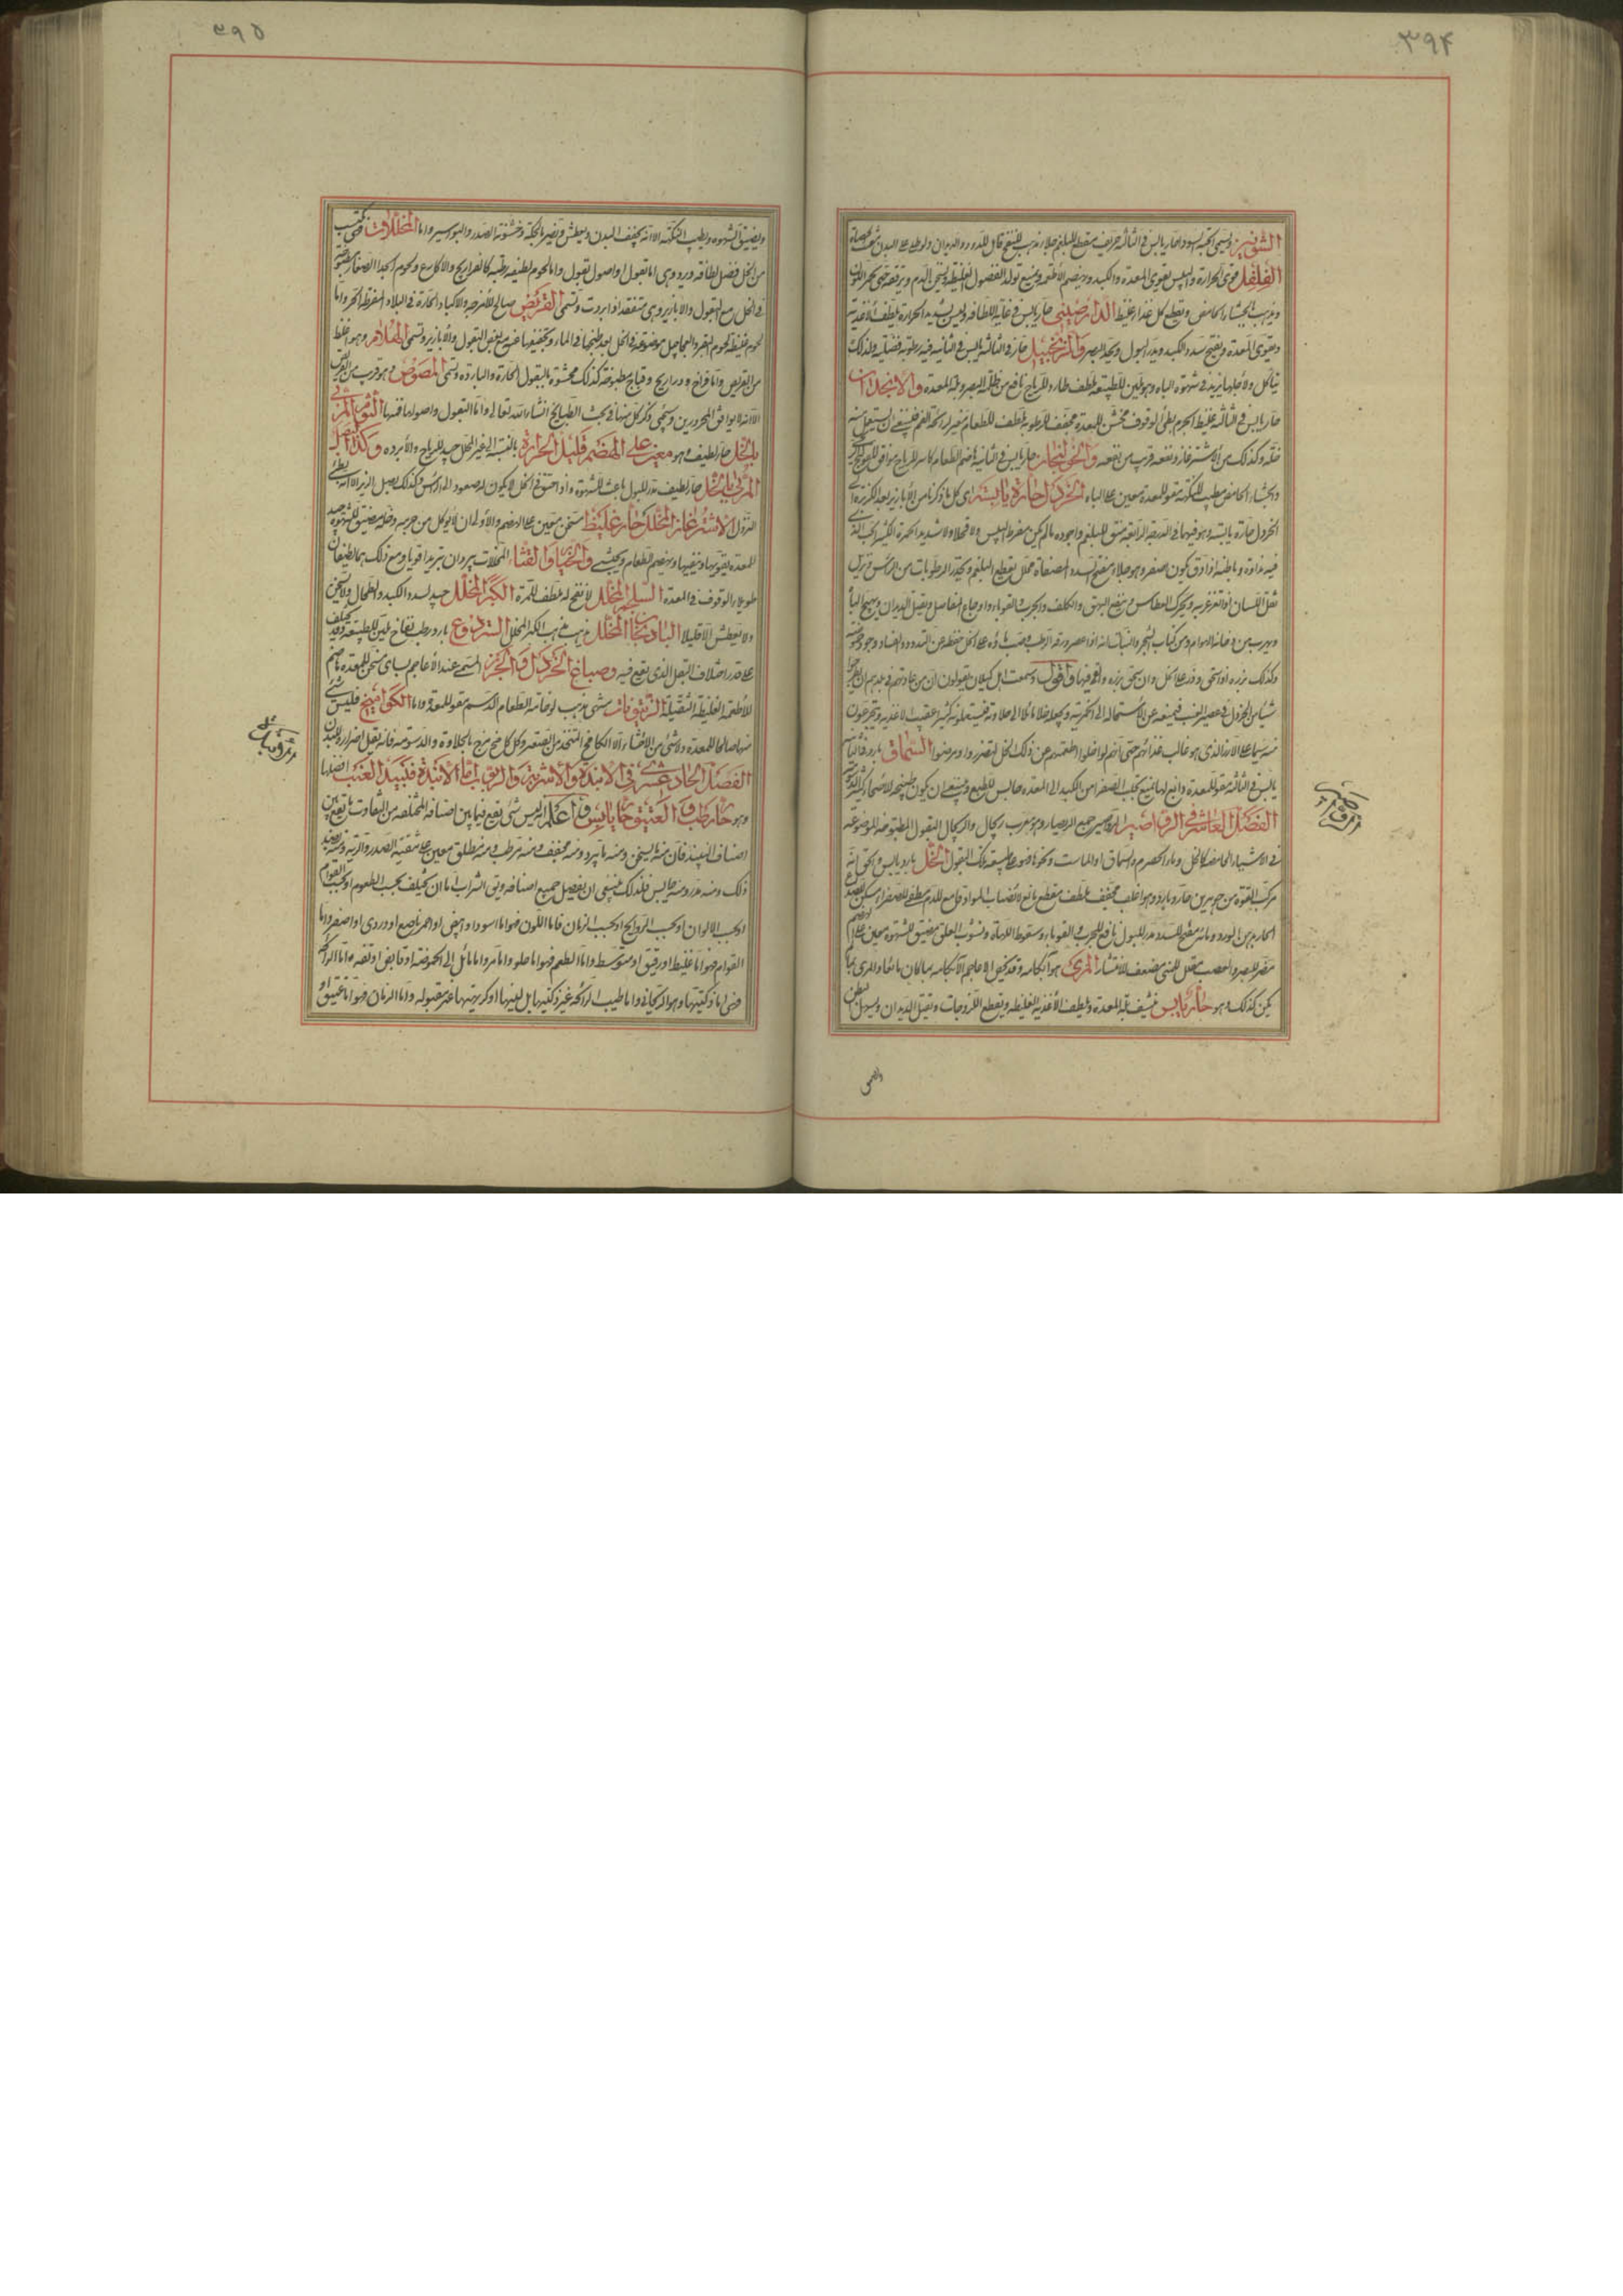 ٣٩۴
الشونيز ويسمى الحبة السوداء حار يابس في الثالثة حريف مقطع للبلغم جلاء مذهب للنفخ قاتل للدود والديدان ولو طلي على البدن
الفلفل قوي الحرارة واليبس يقوي المعدة والكبد ويهضم الأطعمة ويمنع تولد الفضول الغليظة ويسخن الدم ويرققه حتى يحمر اللون
ويذهب بالجشاء الحامض ويقطع كل غذاء غليظ الدارصيني حار يابس في غاية اللطافة وليس بشديد الحرارة يلطف الأغذية
ويقوي المعدة ويفتح سدد الكبد ويدر البول ويحد البصر والزنجبيل حار في الثالثة يابس في الثانية فيه رطوبة فضلية ولذلك
يتأكل ولأجلها يزيد في شهوة الباه وهو ملين للطبيعة ملطف طارد للرياح نافع من ظلمة البصر وبلة المعدة والأنجدان
حار يابس في الثالثة غليظ الجرم بطيء الوقوف مخشن للمعدة مجفف للرطوبة ملطف للطعام مغير لرائحة الفم فينبغي أن يستعمل منه
خله وكذلك من الأشترغاز ونفعه قريب من نفعه والخولنجان حار يابس في الثانية هاضم للطعام كاسر للرياح موافق للقولنج
والجشاء الحامض مطيب للنكهة مقو للمعدة معين على الباه الخردل حارة يابسة أي كل ما ذكرنا من الأبازير بعد الكزبرة إلى
الخردل حارة يابسة وهو فيهما في الدرجة الرابعة منق للبلغم وأجوده ما لم يكن مفرط اليبس ولا قحلا ولا شديد الحمرة الكبير الحب الذي
فيه نداوة وباطنه إذا دق يكون أصفر وهو جلاء مفتح لسدد المصفاة محلل يقطع البلغم ويحدر الرطوبات من الرأس ويزيل
ثقل اللسان إذا تغرغر به ويحرك العطاس وينفع البهق والكلف والجرب والقوباء وأوجاع المفاصل ويقتل الديدان ويهيج الباه
ويهرب من دخانه الهوام ومن كتاب الشجر والنبات أنه إذا عصر ورقه الرطب وصب ماؤه على الخل حفظه من التدود والفساد وجود حموضته
وكذلك بزره إذا سحق وذر على خل وإن سحق بزره وألقي فيها أقول وسمعت أهل كيلان يقولون إن من عادتهم في بلدهم أن يطرحوا
شيئا من الخردل في عصير العنب فيمنعه عن الاستحالة إلى الخمرية ويجعله خلا مائلا إلى حلاوة فيستعملونه كثيرا عقيب الأغذية ويتجرعون
منه سيما على الأرز الذي هو غالب غذائهم حتى أنهم لو أخلوا أطعمتهم عن ذلك الخل لتضرروا ومرضوا السماق بارد في الثانية
يابس في الثالثة مقو للمعدة دابغ لها يمنع تحلب الصفراء من الكبد إلى المعدة حابس للطبع وينبغي أن يكون طبيخه للأصحاء كثير الدسومة
الفصل العاشر في الرواصير الرواصير جمع الريصار وهو معرب ريچال والريچال البقول المطبوخة الموضوعة
في الأشياء الحامضة كالخل وماء الحصرم والسماق أو الماست ونحوها فهو على طبيعة تلك البقول الخل بارد يابس والحق أنه
مركب القوة من جوهرين حار وبارد وهو أغلب مجفف ملطف مقطع مانع لانصباب المواد قامع للدم مطفئ للصفراء مسكن
الحار من الورد ومائه مفتح للسدد مدر للبول نافع للجرب والقوباء وسقوط اللهاة ونشوب العلق مضيق للشهوة معين على الهضم
مضر للبصر والعصب مقلل للمني مضعف للانتشار المري هو آبكامه
يمكن كذلك وهو حار يابس ينشف بلة المعدة وتلطف الأغذية الغليظة ويقطع اللزوجات ويقتل الديدان ويسهل البطن
الرواصير
٣٩۵
ويضيق الشهوة ويطيب النكهة إلا أنه يجفف البدن ويعطش ويضر بالحكة وخشونة الصدر والبواسير وأما المخللات فهي تكتسب
من الخل فضل لطافة وبرد وهي إما بقول أو أصول بقول وإما لحوم لطيفة رطبة كالفراريج والأكارع ولحوم الجداء الصغار مطبوخة
في الخل مع البقول والأبازير وهي منعقدة إذا بردت وتسمى القريض صالح للأمزجة والأكباد الحارة في البلاد المفرطة الحر وإما
لحوم غليظة كلحوم البقر والعجاجيل موضوعة في الخل بعد طبخها في الماء وتجفيفها مع بعض البقول والأبازير وتسمى الهلام وهو أغلظ
من القريض وإما فراخ ودراريج وقباج مطبوخة كذلك محشوة بالبقول الحارة والباردة وتسمى المصوص وهو قريب من القريض
إلا أنه لا يوافق المحرورين وسيجيء ذكر كل منها في بحث الطبائخ إن شاء الله تعالى وأما البقول وأصولها فمنها الثوم المربى
بالخل حار لطيف وهو معين على الهضم قليل الحرارة بالنسبة إلى غير المخلل جيد للرياح والأبردة وكذا البصل
المربى بالخل حار لطيف مدر للبول باعث للشهوة وإذا عتق في الخل لا يكون له صعود إلى الرأس وكذلك بصل الزير إلا أنه بطيء
النزول الأشترغاز المخلل حار غليظ مسخن معين على الهضم والأولى أن لا يؤكل من جرمه وخله مضيق للشهوة جيد
للمعدة يقويها وينقيها ويهضم الطعام ويجشي والخيار والقثاء المخللات يبردان تبريدا قويا ومع ذلك هما يضعفان
طويلا الوقوف في المعدة السلجم المخلل لا نفخ له ملطف للمرة الكبر المخلل جيد لسدد الكبد والطحال ولا يسخن
ولا يعطش إلا قليلا الباذنجان المخلل يذهب مذهب الكبر المخلل الشردنوع بارد رطب نفاخ ملين للطبيعة وقد يختلف
على قدر اختلاف البقل الذي يقع فيه وصباغ الخردل والخرز المسمى عند الأعاجم بساي مسخن للمعدة هاضم
للأطعمة الغليظة الثقيلة الزيتونات مشهي مذهب لوخامة الطعام الدسم مقو للمعدة وأما الكواميخ فليس شيء
منها صالحا للمعدة ولا شيء من الأحشاء إلا الكامخ المتخذ من الصعتر وكل كامخ مزج بالحلاوة والدسومة فإنه يقل إضراره للبدن
الفصل الحادي عشر في الأنبذة والأشربة والربوب أما الأنبذة فنبيذ العنب أفضلها
وهو حار رطب والعتيق حار يابس واعلم أنه ليس شيء يقع فيما بين أصنافه المختلفة من التفاوت ما يقع بين
أصناف النبيذ فإن منه ما يسخن ومنه ما يبرد ومنه مجفف ومنه مرطب ومنه مطلق معين على تنقية الصدر والرية ومنه ضد
ذلك ومنه مدر ومنه حابس فلذلك ينبغي أن يفصل جميع أصنافه وبقي الشراب إما أن يختلف بحسب الطعوم أو بحسب القوام
أو بحسب الألوان أو بحسب الروائح أو بحسب الزمان فأما اللون فهو إما أسود أو أبيض أو أحمر ناصع أو وردي أو أصفر وأما
القوام فهو إما غليظ أو رقيق أو متوسط وأما الطعم فهو إما حلو وإما مر وإما مائل إلى الحموضة أو قابض أو تفه وأما الرائحة
فهي إما ذكيتها وهو الريحاني وإما طيب الرائحة غير ذكيتها بل لينها أو كريهتها غير مقبولة وأما الزمان فهو إما عتيق أو